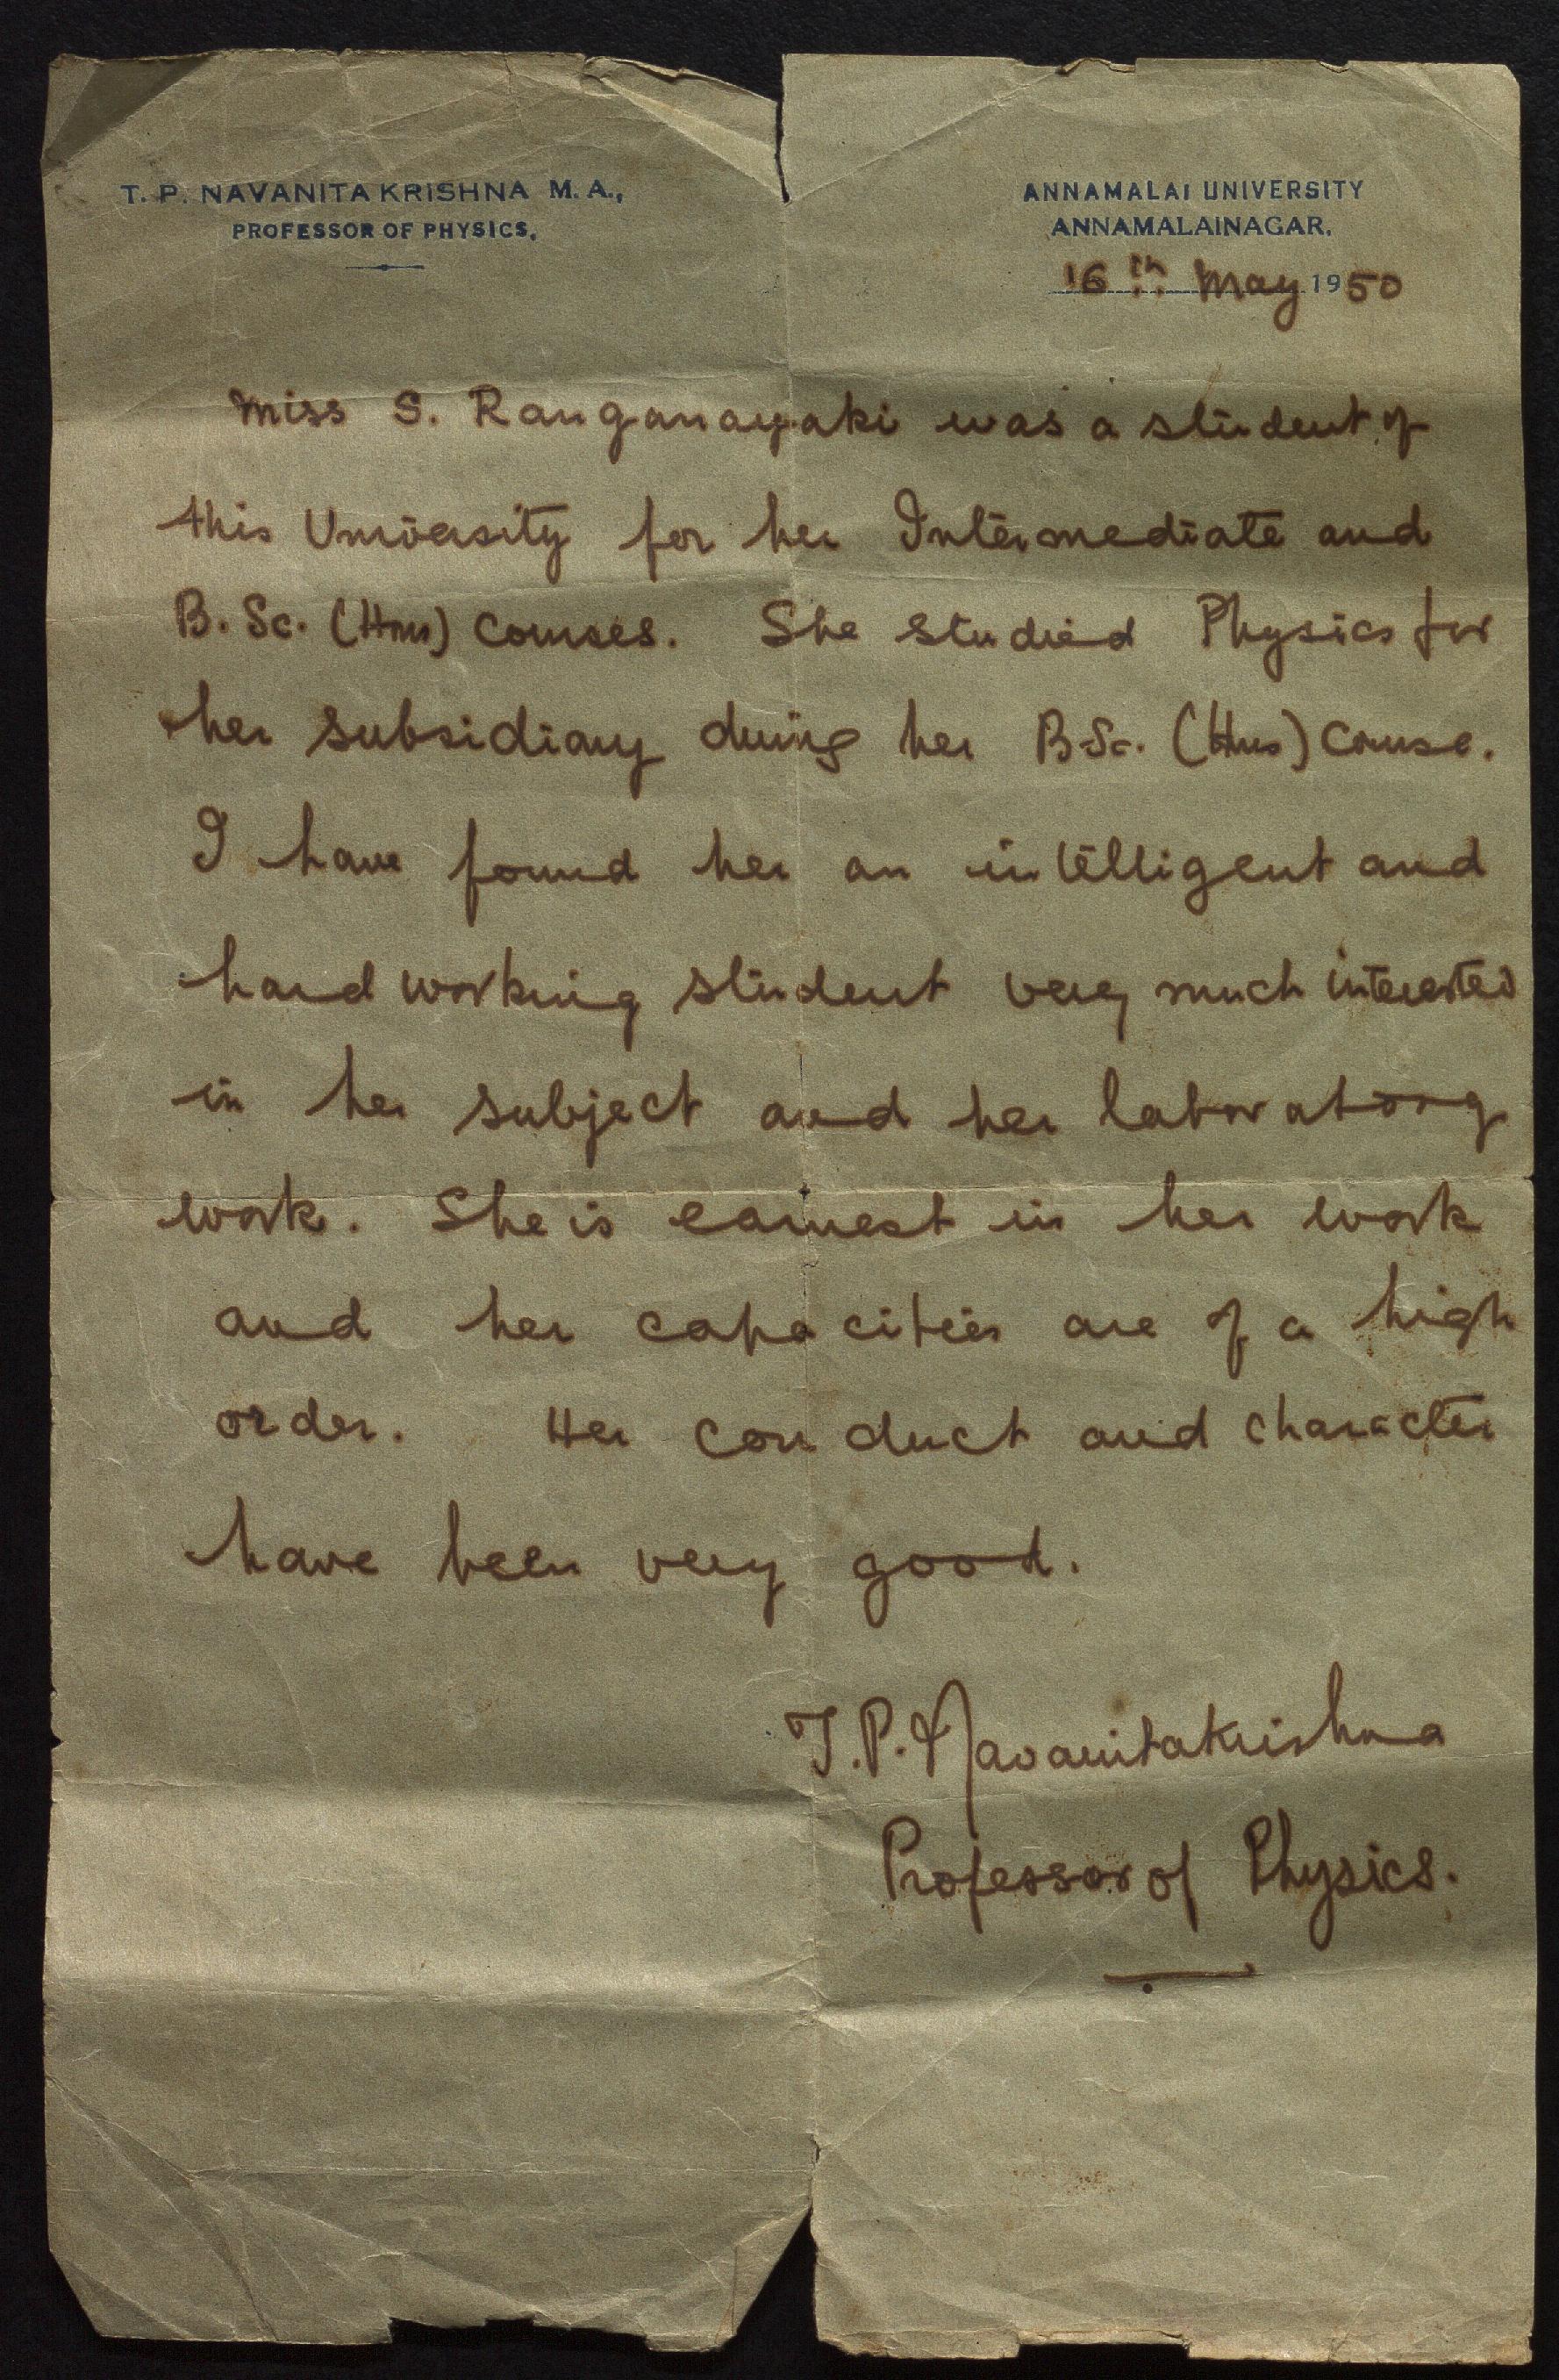 T. P. NAVANITA KRISHNA M. A.,
PROFESSOR OF PHYSICS.
ANNAMALAI UNIVERSITY
ANNAMALAINAGAR.
16th May 1950
Miss S. Ranganayaki was a student of
this University for her Intermediate and
B. Sc. (Hns) courses. She studied Physics for
her subsidiary during her B.Sc. (Hns) course.
I have found her an intelligent and
hard working student very much interested
in her subject and her laboratory
work. She is earnest in her work
and her capacities are of a high
order. Her conduct and character
have been very good.
T. P. Navanitakrishna
Professor of Physics.